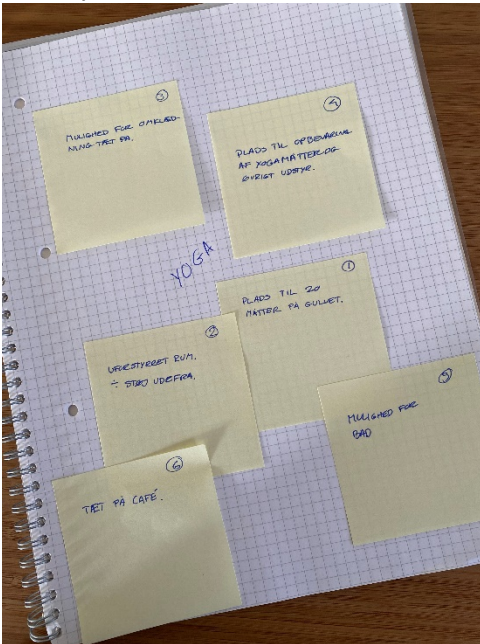 ③
MULIGHED FOR OMKLÆD-
NING TÆT PÅ.
④
PLADS TIL OPBEVARING
AF YOGAMÅTTER OG
ØVRIGT UDSTYR.
YOGA
①
PLADS TIL 20
MÅTTER PÅ GULVET.
②
UFORSTYRRET RUM.
÷ STØJ UDEFRA.
⑤
MULIGHED FOR
BAD
⑥
TÆT PÅ CAFÉ.